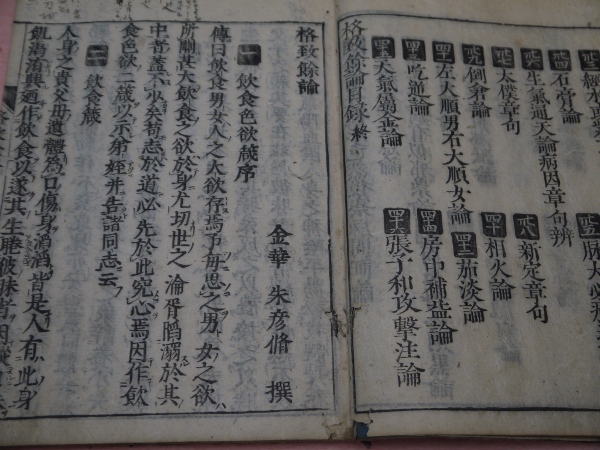 卅四 石膏論
卅六 生氣通天論病因章句辨
卅八 新定章句
卅七 太僕章句
卅九 倒倉論
四十 相火論
四十一 左大順男右大順女論
四十二 茹淡論
四十三 吃逆論
四十四 房中補益論
四十五 天氣屬金論
四十六 張子和攻擊注論
格致餘論目録終
格致餘論
金華 朱彦脩 撰
一 飲食色欲箴序
傳曰飲食男女人之大欲存焉予毎思之男女之欲
所關甚大飲食之欲於身尤切世之淪胥陷溺於其
中者蓋不少矣苟志於道必先於此究心焉因作飲
食色欲二箴以示弟姪并告諸同志云
二 飲食箴
人身之貴父母遺體為口傷身滔滔皆是人有此身
飢渇洊興廼作飲食以遂其生睠彼昧者因